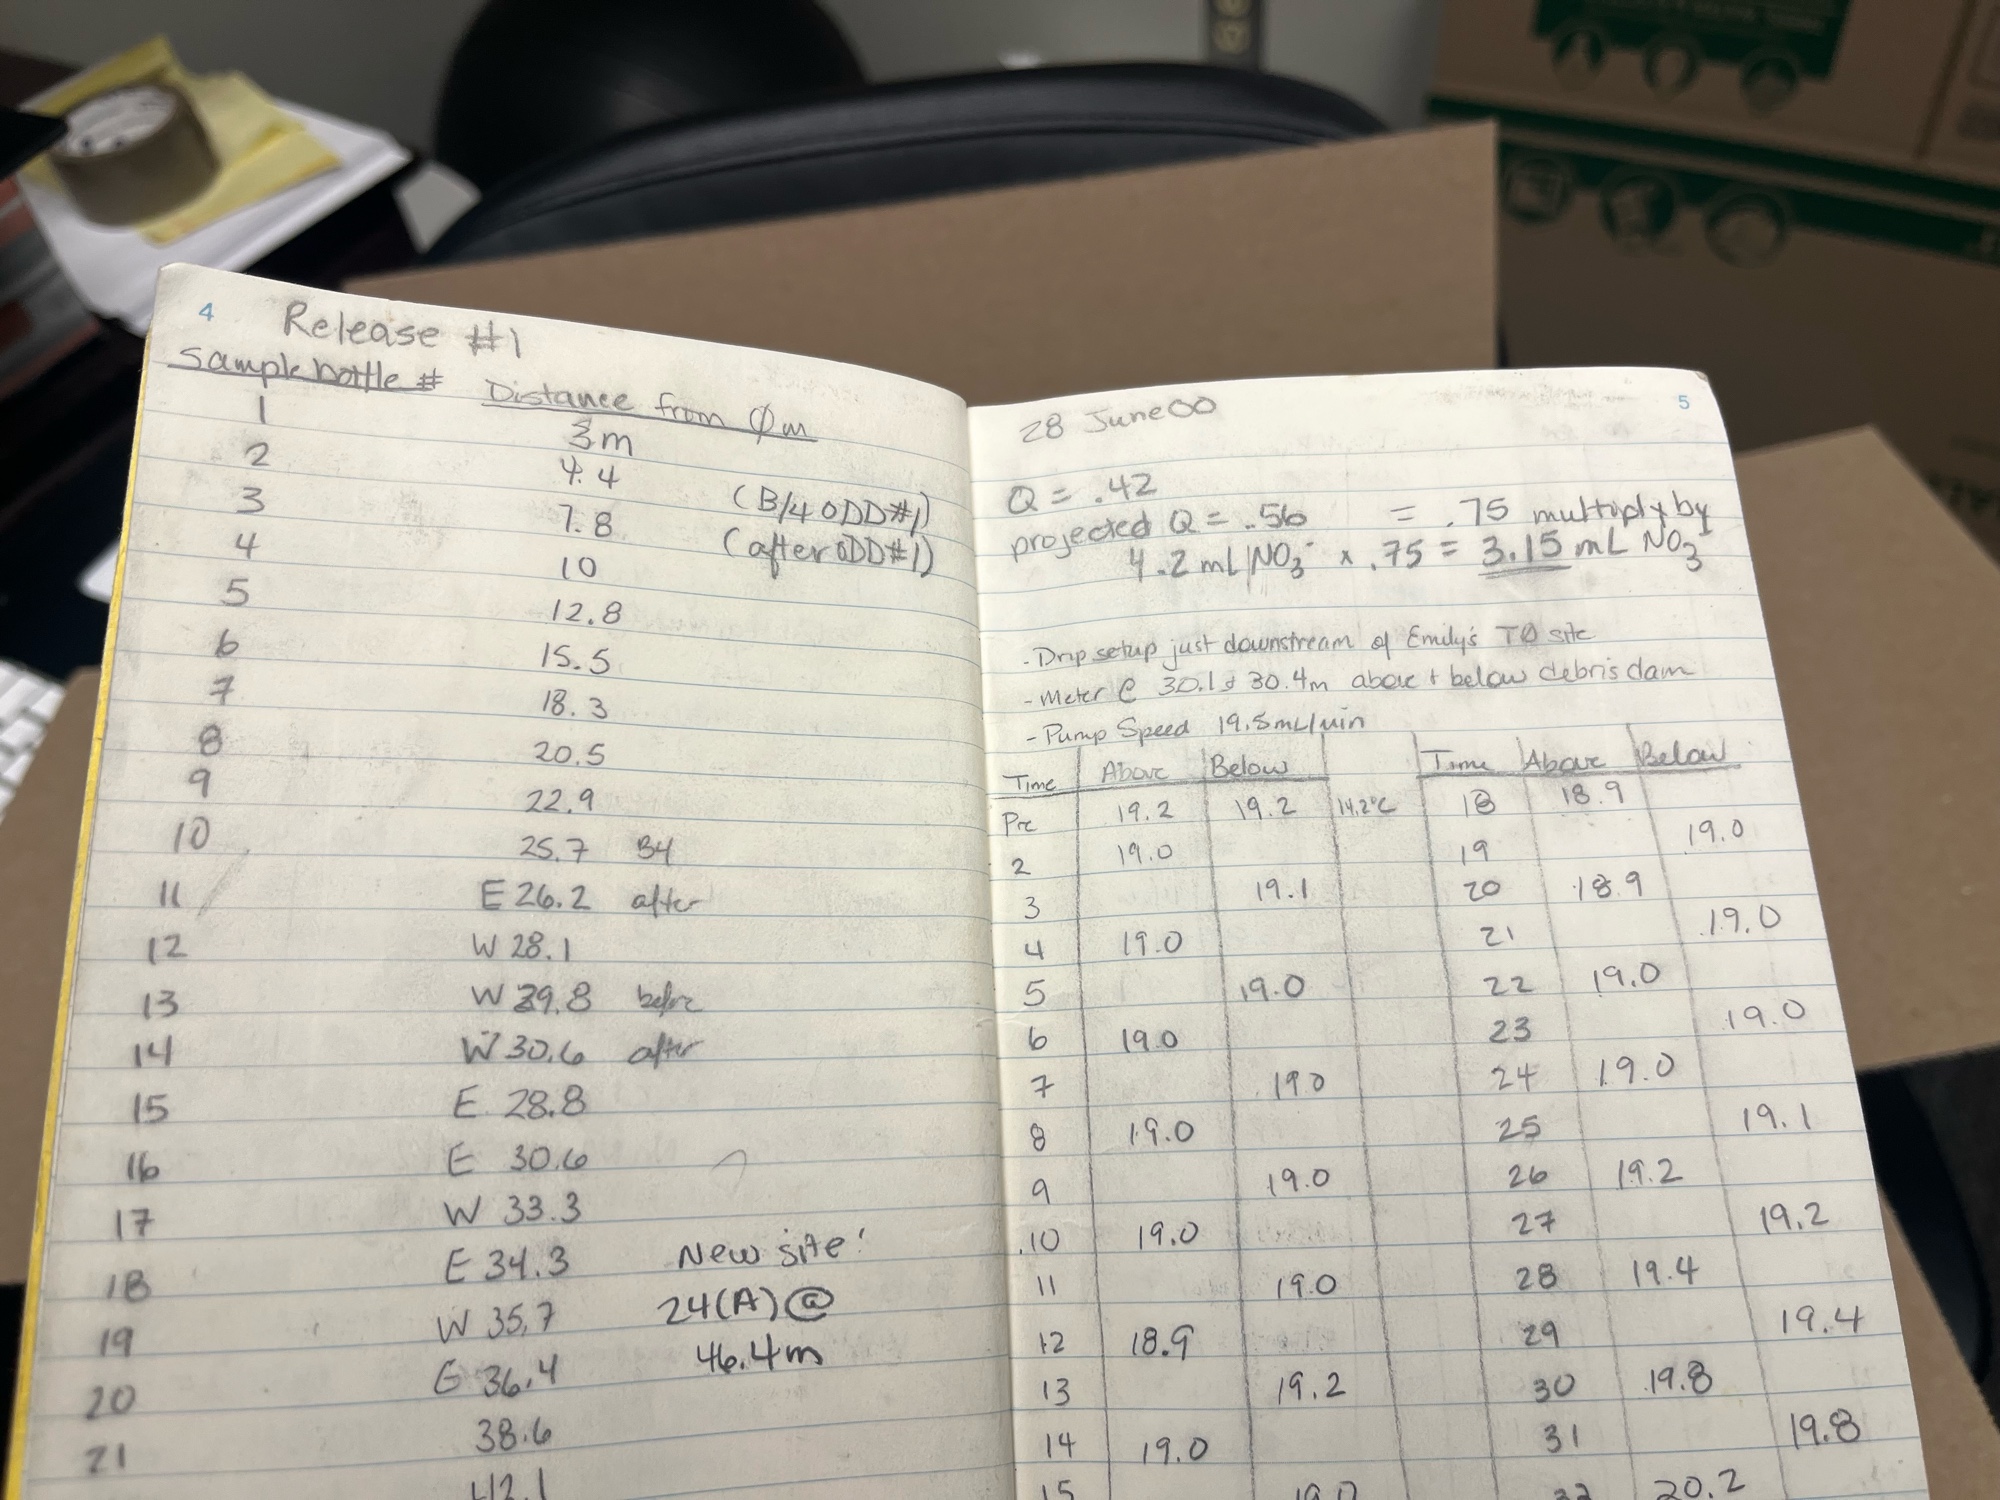 4
Release #1
Sample bottle # Distance from Øm
1 3m
2 4.4 (B/4 ODD#1)
3 7.8 (after ODD#1)
4 10
5 12.8
6 15.5
7 18.3
8 20.5
9 22.9
10 25.7 B4
11 E 26.2 after
12 W 28.1
13 W 29.8 before
14 W 30.6 after
15 E 28.8
16 E 30.6
17 W 33.3
18 E 34.3 New site!
19 W 35.7 24(A) @
20 E 36.4 46.4m
21 38.6
42.1
5
28 June 00
Q = .42
projected Q = .56 = .75 multiply by
4.2 mL NO3- x .75 = 3.15 mL NO3
- Drip setup just downstream of Emily's TØ site
- Meter @ 30.1 & 30.4m above + below debris dam
- Pump Speed 19.5mL/min
Time Above Below Time Above Below
Pre 19.2 19.2 14.2°C 18 18.9
2 19.0 19 19.0
3 19.1 20 18.9
4 19.0 21 19.0
5 19.0 22 19.0
6 19.0 23 19.0
7 19.0 24 19.0
8 19.0 25 19.1
9 19.0 26 19.2
10 19.0 27 19.2
11 19.0 28 19.4
12 18.9 29 19.4
13 19.2 30 19.8
14 19.0 31 19.8
15 19.0 32 20.2